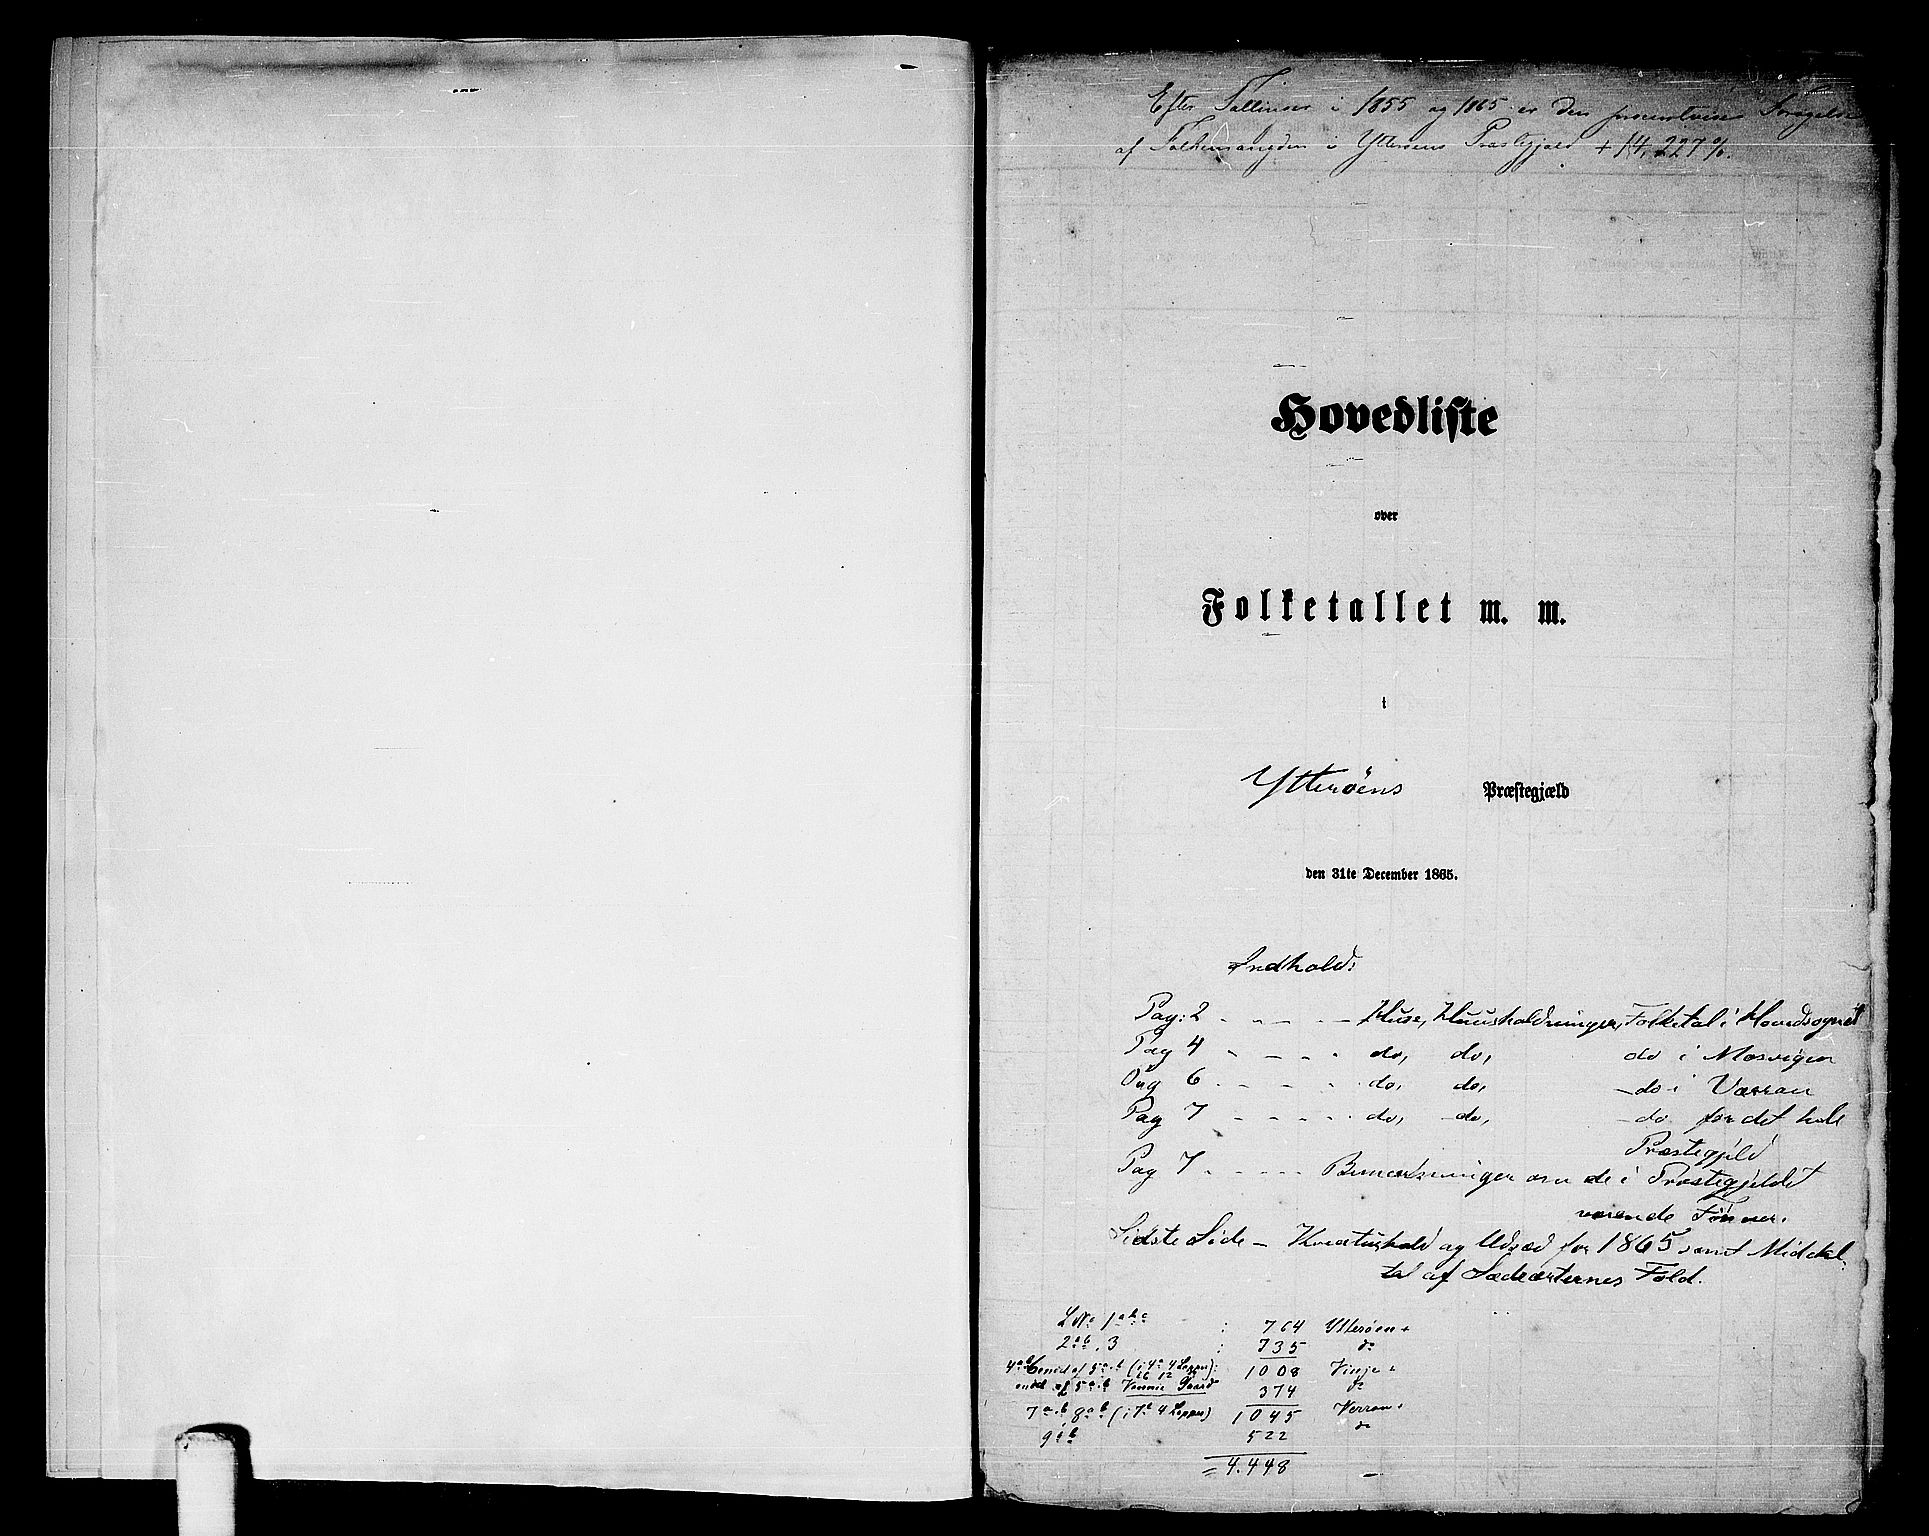 Efter Tællinger i 1855 og 1865 er den procentvise Forøgelse
af Folkemængden i Ytterøens Præstegjæld + 14,227%.
Hovedliste
over
Folketallet m. m.
i
Ytterøens Præstegjæld
den 31te December 1865.
Indhold:
Pag: 2 - - - - Huse, Huusholdninger, Folketal i Hovedsognet
Pag 4 - - - - do, do, do i Mosvigen
Pag 6 - - - - do, do, do i Værran
Pag 7 - - - - do, do, do for det hele
Præstegjeld
Pag 7 - - - - Bemærkninger om de i Præstegjeldet
værende Tønner.
Sidste Side - Kreaturhold og Udsæd for 1865 samt Middel-
tal af Sædearternes Fold.
L No 1 a b c : 764 Ytterøen
2 a b, 3 : 735 do
1008 Vinje
374 do
7 a b, 8 a b (i 7 a 4 Lapper) 1045 Verran
9 a b 522 do
= 4.448